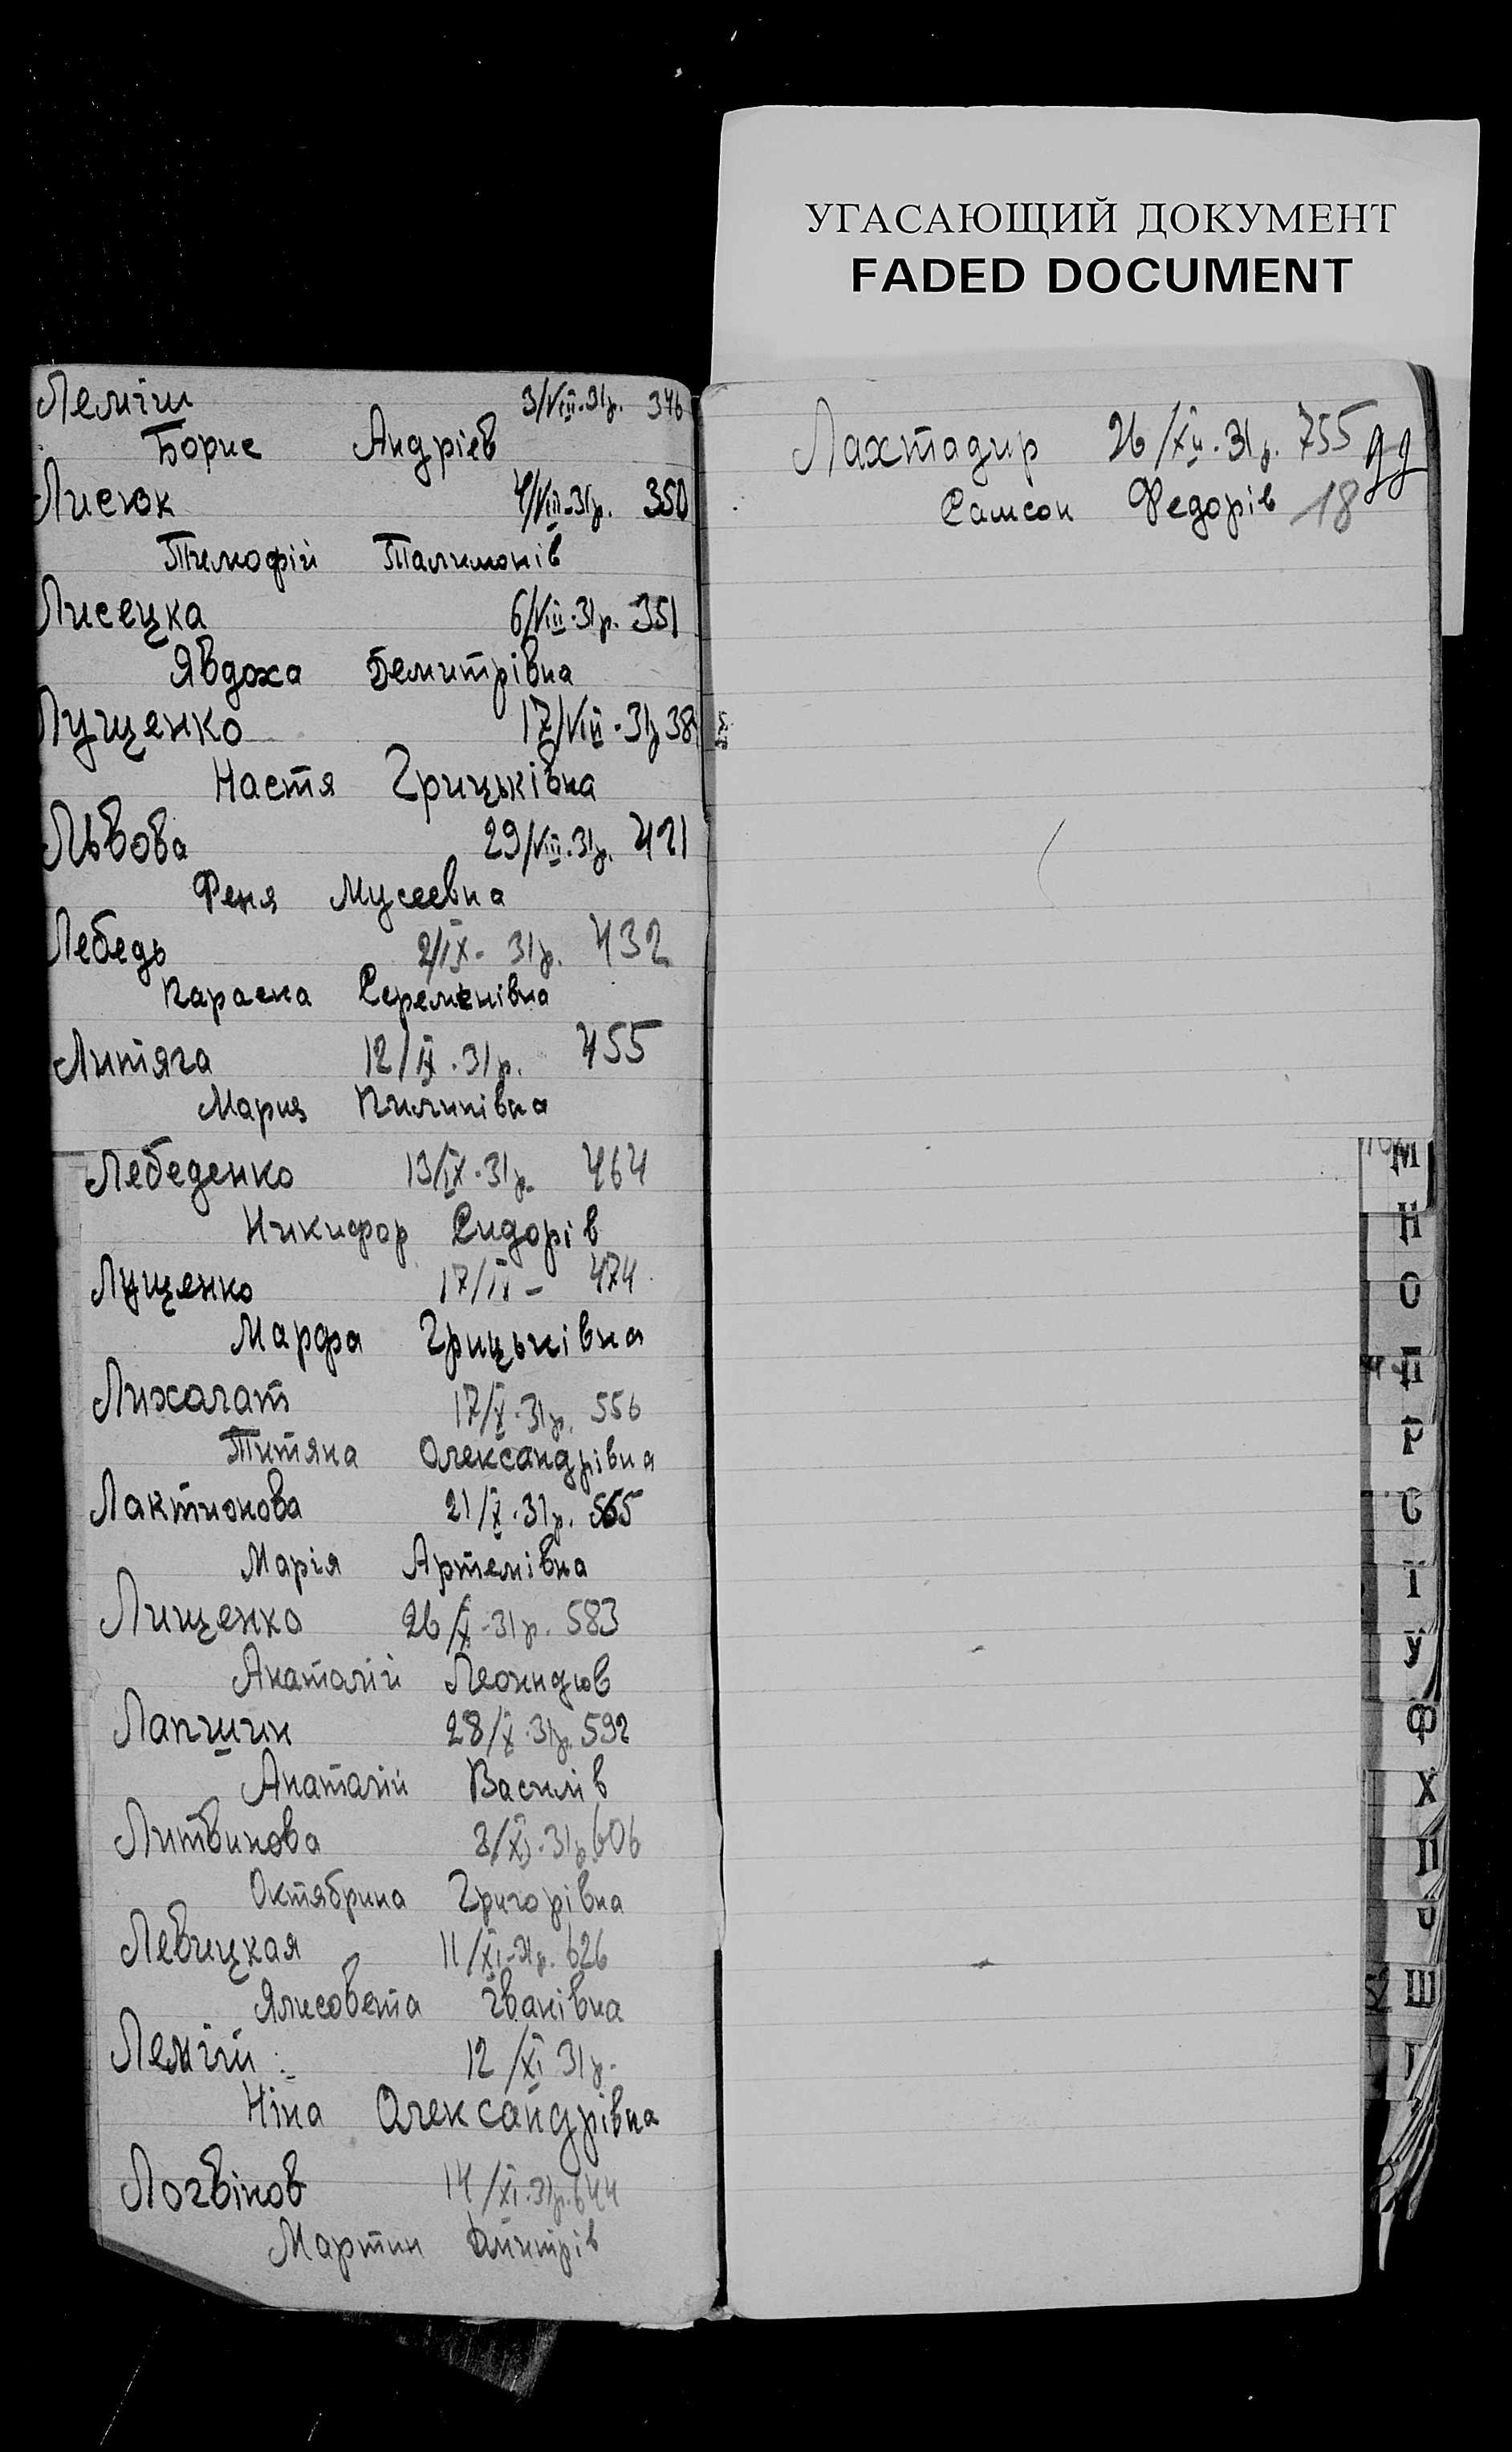 УГАСАЮЩИЙ ДОКУМЕНТ
FADED DOCUMENT
Леміш 3/VIII-31р. 346
Борис Андріев
Лисюк 4/VIII-31р. 350
Тимофій Талимонів
Лисецка 6/VIII-31р. 351
Явдоха Демитрівна
Лущенко 17/VIII-31р 38
Настя Грицьківна
Львова 29/VIII-31р. 421
Феня Мусеевна
Лебедь 2/IX- 31р. 432
Параска
Литяга 12/IX-31р. 455
Мария Пилипівна
Лебеденко 13/IX-31р. 464
Никифор Сидорів
Лущенко 17/IX- 474
Марфа Грицьківна
Лихолат 17/X-31р. 556
Титяна Олександрівна
Лактионова 21/X-31р. 565
Марія Артемівна
Лищенко 26/X-31р. 583
Анаталій Леонидов
Лапшин 28/X-31р. 592
Анаталій Василів
Литвинова 3/XI-31р. 606
Октябрина Григорівна
Левицкая 11/XI-31р. 626
Ялисовета Іванівна
12/XI 31р.
Ніна Олександрівна
Логвінов 14/XI-31р. 644
Мартин Дмитрів
Лахтадир 26/XII-31р. 755 ДД
Самсон Федорів 18
М
Н
О
П
Р
С
Т
У
Ф
Х
Ц
Ч
Ш